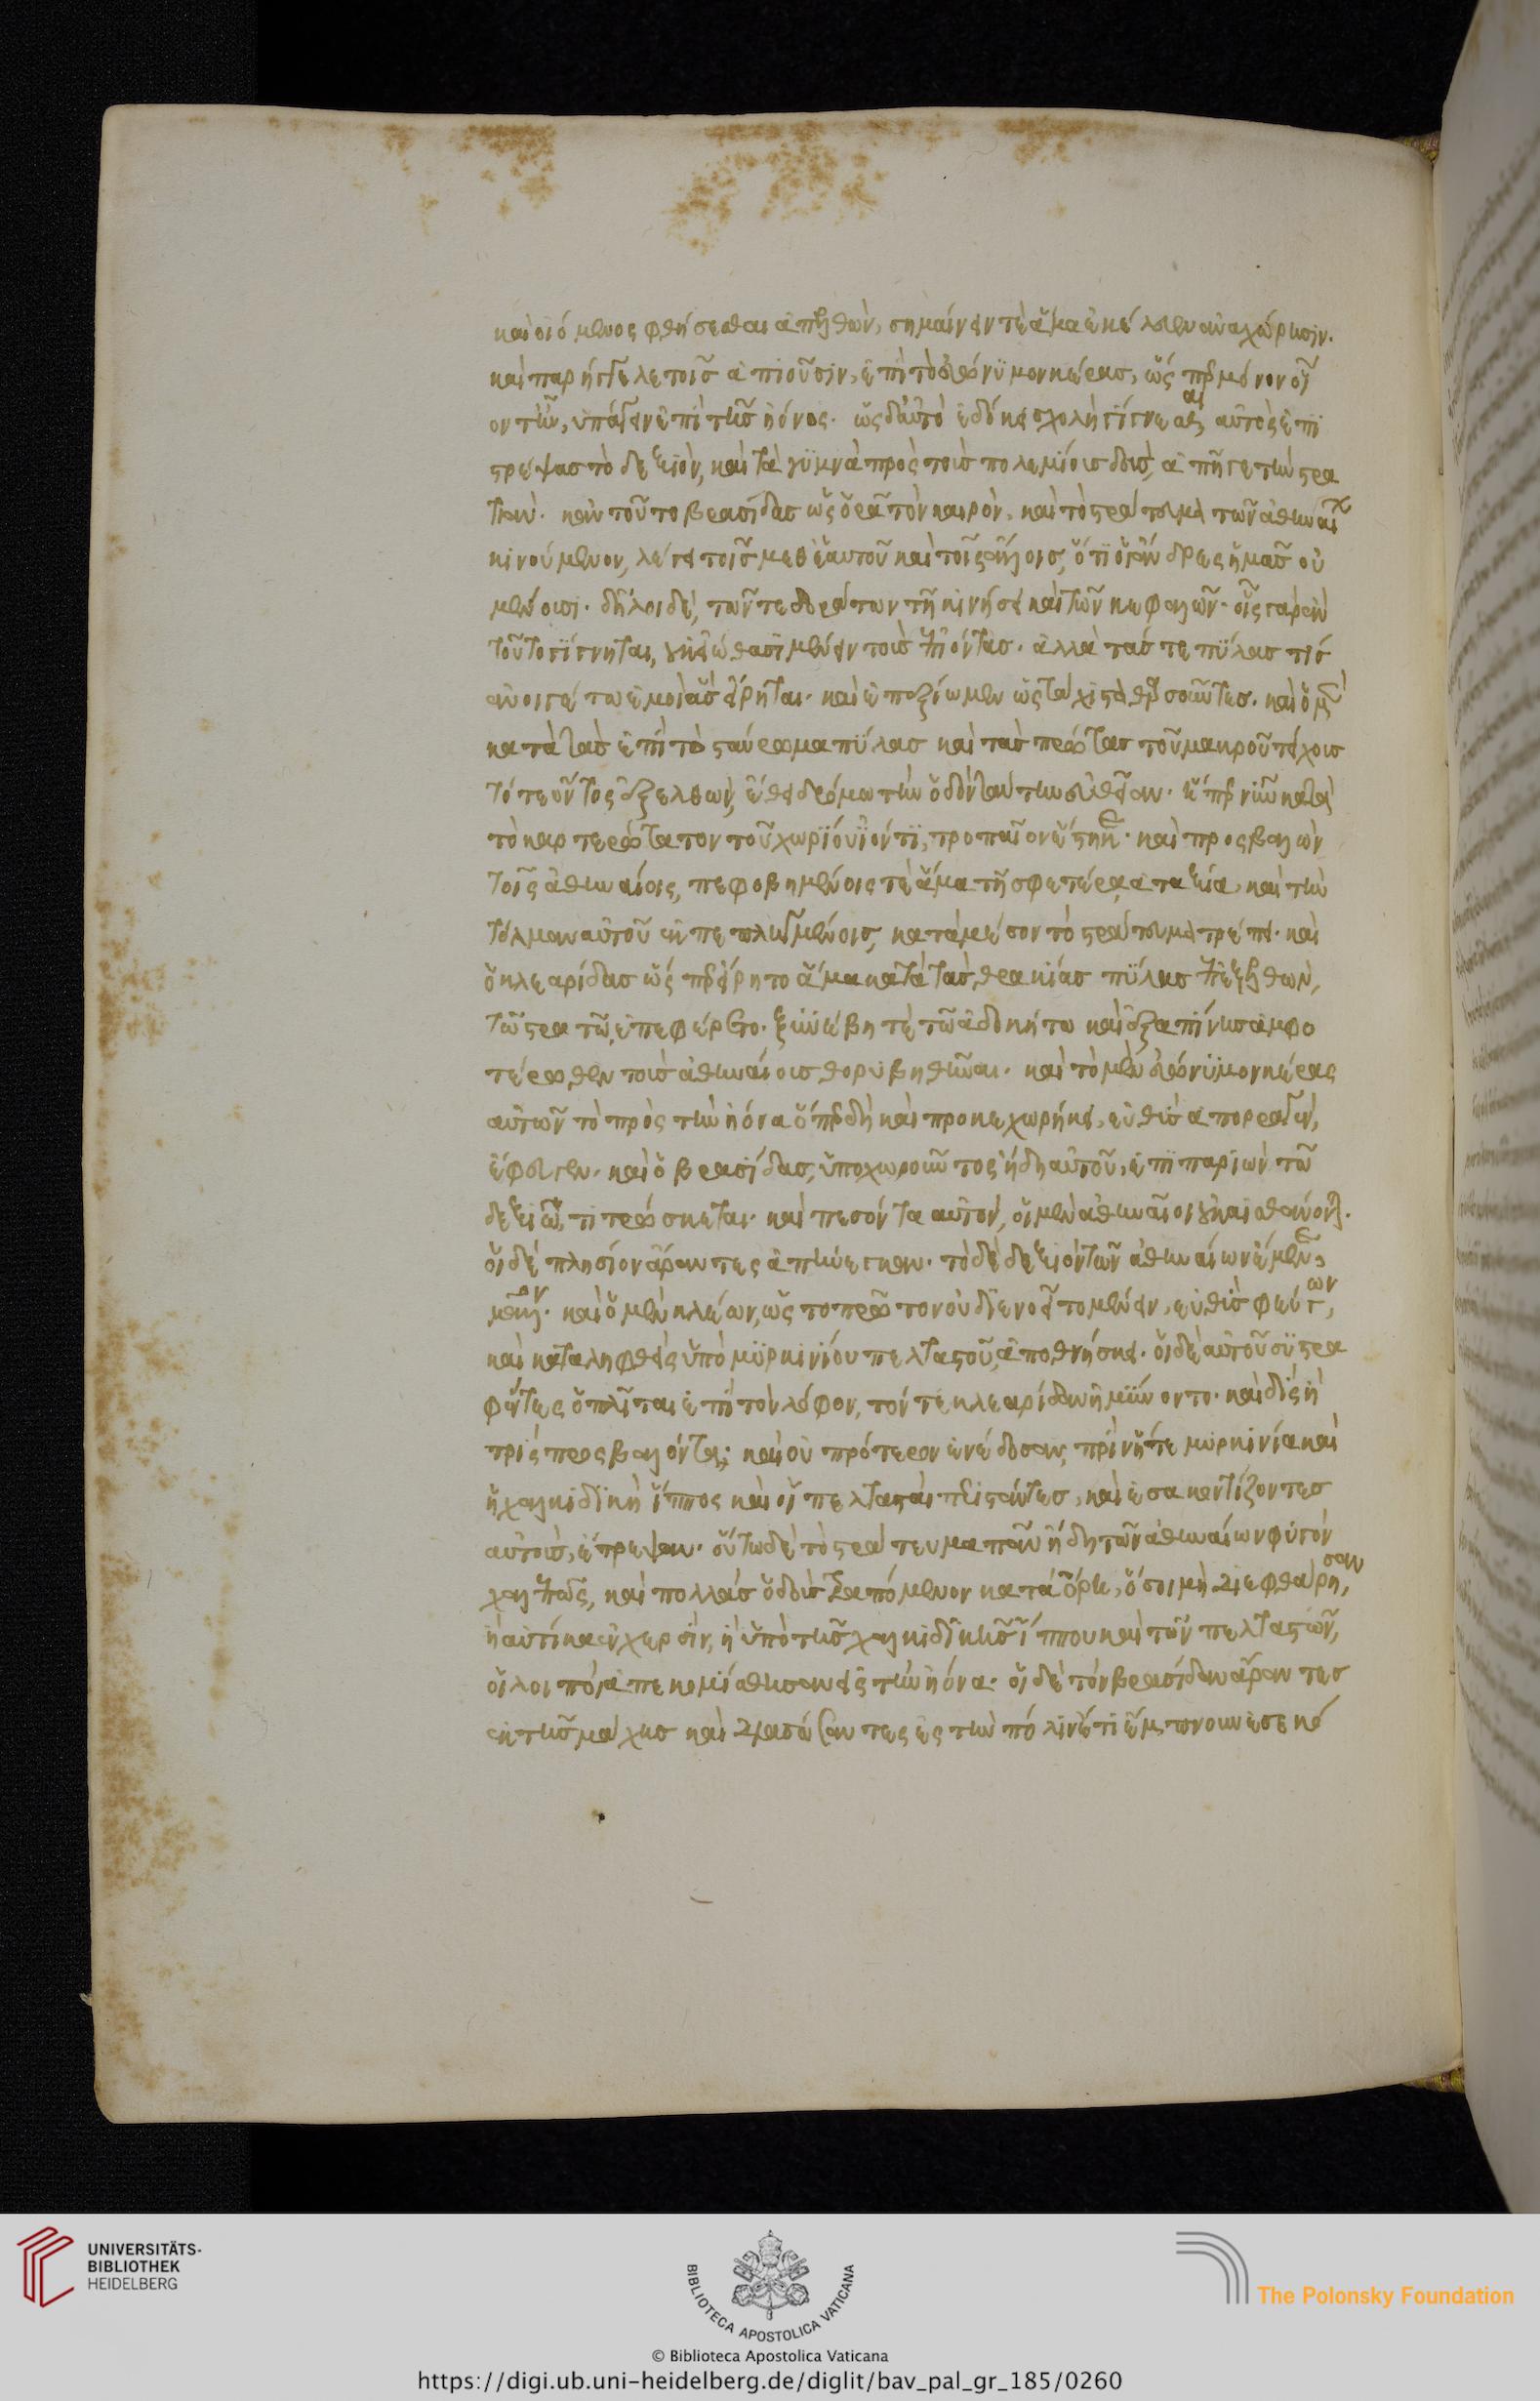 καὶ οἰόμενος φθήσεσθαι ἀπελθὼν, σημαίνειν τὲ ἅμα ἐκέλευεν ἀναχώρησιν.
καὶ παρήγγελε τοῖς ἀπιοῦσιν, ἐπὶ τὸ εὐώνυμον κέρας, ὥσπερ μόνον οἷ
ον τ' ἦν, ὑπάγειν ἐπὶ τῆς ἠιόνος. ὡς δ' αὐτῶ ἐδόκει σχολὴ γίγνεσθαι, αὐτὸς ἐπι
στρέψας τὸ δεξιὸν, καὶ τὰ γυμνὰ πρὸς τοὺς πολεμίους δοὺς, ἀπῆγε τὴν στρα
τιάν. κἀν τούτω βρασίδας ὡς ὁρᾶ τὸν καιρὸν, καὶ τὸ στράτευμα τῶν ἀθηναίων
κινούμενον, λέγει τοῖς μεθ' ἑαυτοῦ καὶ τοῖς ἄλλοις, ὅτι οἱ ἄνδρες ἡμᾶς οὐ
μένουσι. δῆλοι δὲ, τῶν τε δοράτων τῆ κινήσει καὶ τῶν κεφαλῶν. οἷς γὰρ ἂν
τοῦτο γίγνηται, οὐκ εἰώθασι μένειν τοὺς ἐπιόντας. ἀλλὰ τάς τε πύλας τίς
ἀνοιγέτω ἐμοὶ ἃς εἴρηται. καὶ ἐπεξίωμεν ὡς τάχιστα θαρσοῦντες. καὶ ὁ μὲν
κατὰ τὰς ἐπὶ τὸ σταύρωμα πύλας καὶ τὰς πρώτας τοῦ μακροῦ τείχους
τότε ὄντος ἐξελθὼν, ἔθει δρόμω τὴν ὁδὸν ταύτην εὐθεῖαν. ᾗπερ νῦν κατὰ
τὸ καρτερώτατον τοῦ χωρίου ἰόντι, τροπαῖον ἕστηκε. καὶ προσβαλὼν
τοῖς ἀθηναίοις, πεφοβημένοις τὲ ἅμα τῆ σφετέρα ἀταξία, καὶ τὴν
τόλμαν αὐτοῦ ἐκπεπληγμένοις, κατὰ μέσον τὸ στράτευμα τρέπει. καὶ
ὁ κλεαρίδας ὥσπερ εἴρητο ἅμα κατὰ τὰς θρακίας πύλας ἐπεξελθὼν,
τῶ στρατῶ ἐπεφέρετο. ξυνέβη τὲ τῶ ἀδοκήτω καὶ ἐξαπίνης ἀμφο
τέρωθεν τοὺς ἀθηναίους θορυβηθῆναι. καὶ τὸ μὲν εὐώνυμον κέρας
αὐτῶν τὸ πρὸς τὴν ἠιόνα ὅπερ δὴ καὶ προκεχωρήκει, εὐθὺς ἀπορραγὲν,
ἔφευγεν. καὶ ὁ βρασίδας, ὑποχωροῦντος ἤδη αὐτοῦ, ἐπιπαριὼν τῶ
δεξιῶ, τιτρώσκεται. καὶ πεσόντα αὐτὸν, οἱ μὲν ἀθηναῖοι οὐκ αἰσθάνονται.
οἱ δὲ πλησίον ἄραντες ἀπήνεγκαν. τὸ δὲ δεξιὸν τῶν ἀθηναίων ἔμενε
μᾶλλον. καὶ ὁ μὲν κλέων, ὡς τὸ πρῶτον οὐ διενοεῖτο μένειν, εὐθὺς φεύγων,
καὶ καταληφθεὶς ὑπὸ μυρκινίου πελταστοῦ, ἀποθνήσκει. οἱ δὲ αὐτοῦ συστρα
φέντες ὁπλῖται ἐπὶ τὸν λόφον, τόν τε κλεαρίδαν ἠμύνοντο. καὶ δὶς ἢ
τρὶς προσβαλόντα; καὶ οὐ πρότερον ἐνέδοσαν, πρὶν ἥτε μυρκινία καὶ
ἡ χαλκιδικὴ ἵππος καὶ οἱ πελτασταὶ περιστάντες, καὶ ἐσακοντίζοντες
αὐτοὺς, ἔτρεψαν. οὕτω δὲ τὸ στράτευμα πᾶν ἤδη τῶν ἀθηναίων φυγὸν
χαλεπῶς, καὶ πολλὰς ὁδοὺς τραπόμενον κατὰ ὄρη, ὅσοι μὴ διεφθάρησαν,
ἢ αὐτίκα ἐν χερσὶν, ἢ ὑπὸ τῆς χαλκιδικῆς ἵππου καὶ τῶν πελταστῶν,
οἱ λοιποὶ ἀπεκομίσθησαν εἰς τὴν ἠιόνα. οἱ δὲ τὸν βρασίδαν ἄραντες
ἐκ τῆς μάχης καὶ διασώσαντες ἐς τὴν πόλιν ἔτι ἔμπνουν ἐσεκό
UNIVERSITÄTS-
BIBLIOTHEK
HEIDELBERG
BIBLIOTECA APOSTOLICA VATICANA
The Polonsky Foundation
© Biblioteca Apostolica Vaticana
https://digi.ub.uni-heidelberg.de/diglit/bav_pal_gr_185/0260